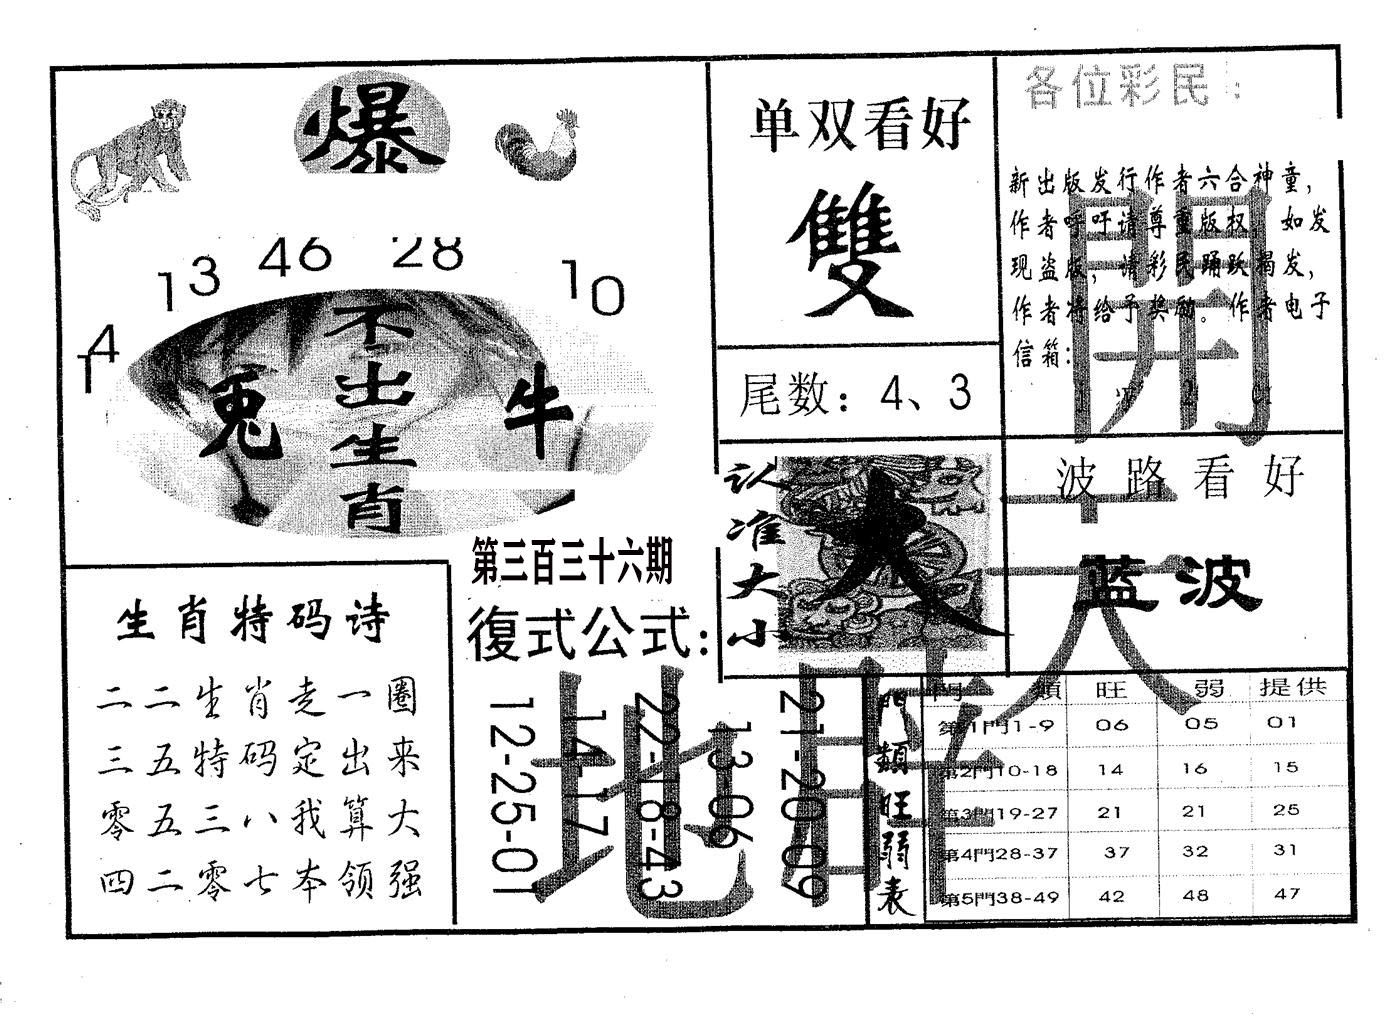 爆
14
13
46
28
10
不出生肖
兎
牛
第三百三十六期
復式公式:
12-25-01
14-17
22-18-43
13-06
21-20-09
生肖特码诗
二二生肖走一圈
三五特码定出来
零五三八我算大
四二零七本领强
单双看好
雙
尾数：4、3
认准大小
大
各位彩民：
新出版发行作者六合神童，
作者呼吁请尊重版权，如发
现盗版，请彩民踊跃揭发，
作者将给予奖励。作者电子
信箱：
波路看好
蓝波
開
天
地
旺
門類旺弱表
門類 旺 弱 提供
第1門1-9 06 05 01
第2門10-18 14 16 15
第3門19-27 21 21 25
第4門28-37 37 32 31
第5門38-49 42 48 47